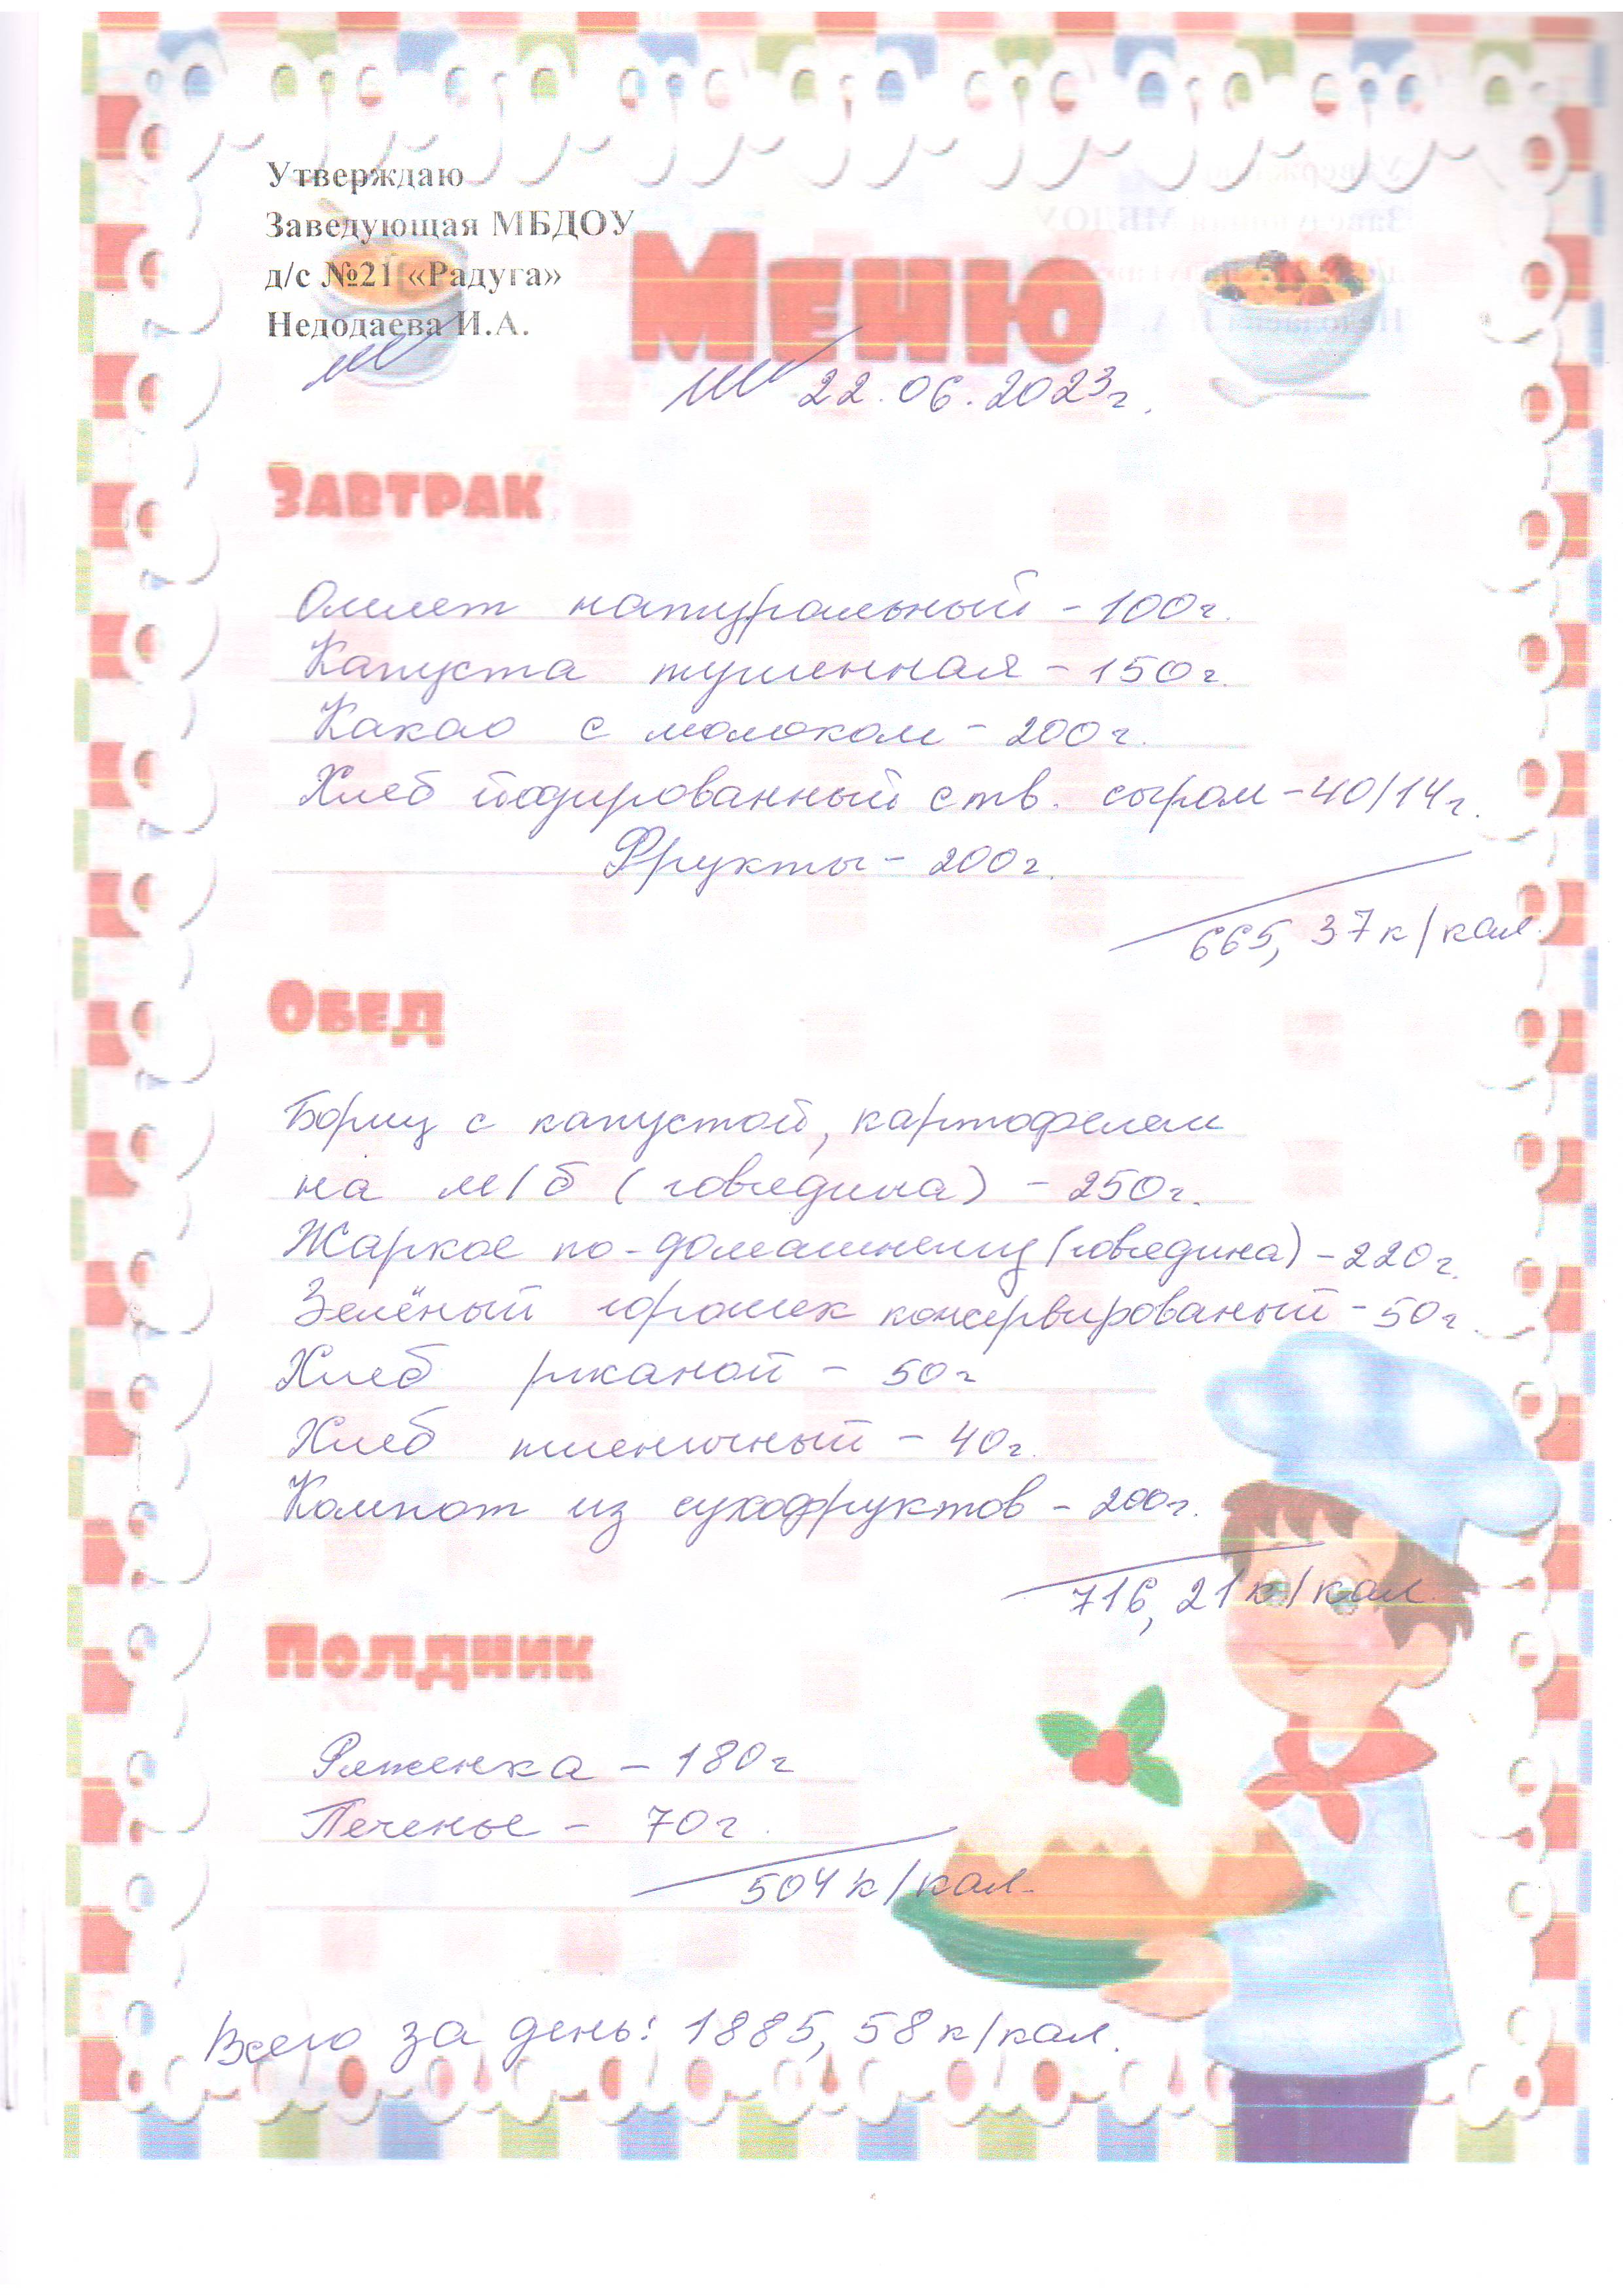 Утверждаю
Заведующая МБДОУ
д/с №21 «Радуга»
Недодаева И.А.
Меню
22.06.2023г.
Завтрак
Омлет натуральный - 100г.
Капуста тушенная - 150г.
Какао с молоком - 200г.
Хлеб йодированный с тв. сыром - 40/14г.
Фрукты - 200г.
665,37 к/кал.
Обед
Борщ с капустой, картофелем
на м/б (говядина) - 250г.
Жаркое по-домашнему (говядина) - 220г.
Зелёный горошек консервированый - 50г.
Хлеб ржаной - 50г
Хлеб пшеничный - 40г.
Компот из сухофруктов - 200г.
716,21 к/кал.
Полдник
Ряженка - 180г
Печенье - 70г.
504 к/кал.
Всего за день: 1885,58 к/кал.